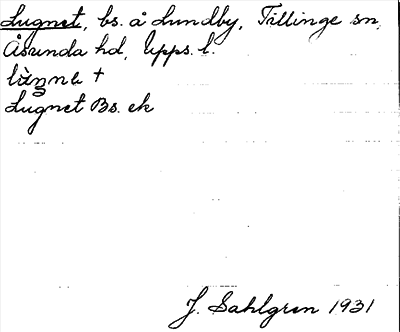 Lugnet, bs. å Lundby, Tillinge sn,
Åsunda hd, Upps. l.
Lugnet Bs. ek
J. Sahlgren 1931